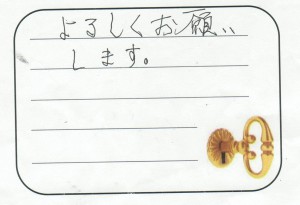 よろしくお願い
します。